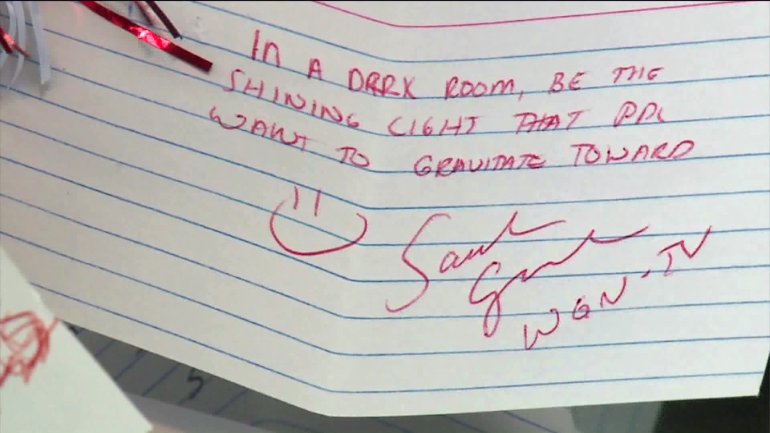 IN A DARK ROOM, BE THE
SHINING LIGHT THAT PPL
WANT TO GRAVITATE TOWARD
WGN-TV